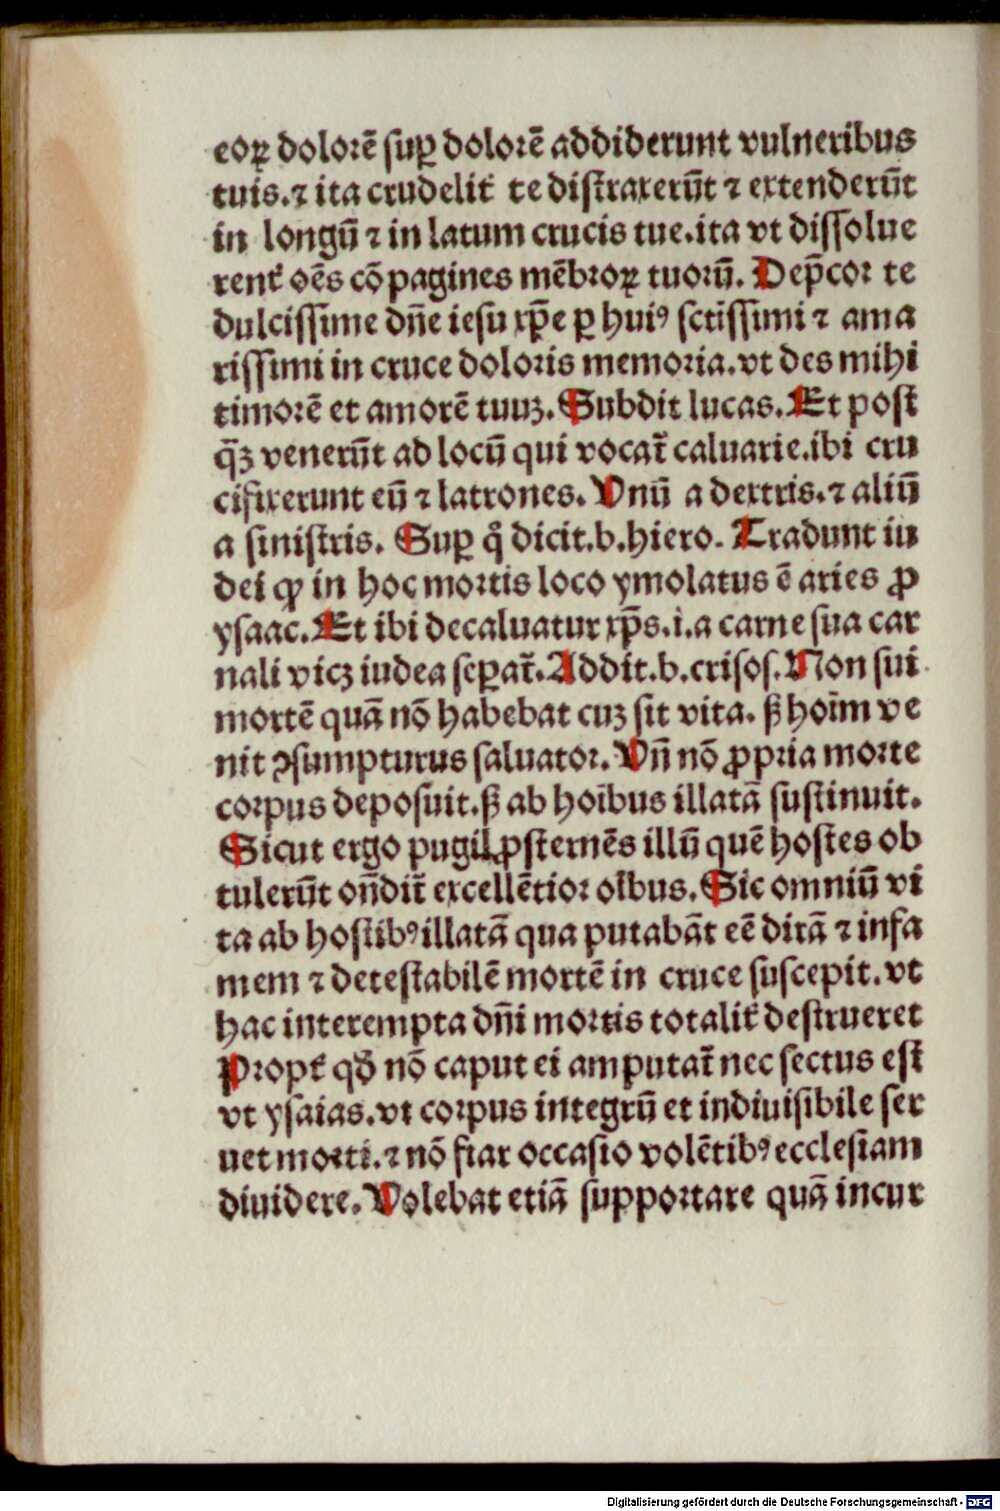 eoꝝ dolorē suꝑ dolorē addiderunt vulneribus
tuis.⁊ ita crudelit̄ te distraxerūt ⁊ extenderūt
in longū ⁊ in latum crucis tue.ita vt dissolue
rent̄ oēs cōpagines mēbroꝝ tuorū. Dep̄cor te
dulcissime dn̄e iesu xp̄e ꝑ huiꝰ sctissimi ⁊ ama
rissimi in cruce doloris memoria.vt des mihi
timorē et amorē tuuꝫ. Subdit lucas. Et post
q̄ꝫ venerūt ad locū qui vocat̄ caluarie.ibi cru
cifixerunt eū ⁊ latrones. Vnū a dextris.⁊ aliū
a sinistris. Suꝑ qͦ dicit.b.hiero. Tradunt iu
dei ꝙ in hoc mortis loco ymolatus ē aries ꝓ
ysaac. Et ibi decaluatur xp̄s.i.a carne sua car
nali vicꝫ iudea seꝑat̄. Addit.b.crisos. Non sui
mortē quā nō habebat cuꝫ sit vita. ꝭ hoīm ve
nit ꝯsumpturus saluator. Vn̄ nō ꝓpria morte
corpus deposuit.ꝭ ab hoībus illatā sustinuit.
Sicut ergo pugil ꝓsternēs illū quē hostes ob
tulerūt on̄dit̄ excellētior oībus. Sic omniū vi
ta ab hostibꝰ illatā qua putabāt eē dirā ⁊ infa
mem ⁊ detestabilē mortē in cruce suscepit.vt
hac interempta dn̄i mortis totalit̄ destrueret
Propt̄ qḋ nō caput ei amputat̄ nec sectus est
vt ysaias.vt corpus integrū et indiuisibile ser
uet morti.⁊ nō fiat occasio volētibꝰ ecclesiam
diuidere. Volebat etiā supportare quā incur
Digitalisierung gefördert durch die Deutsche Forschungsgemeinschaft - DFG